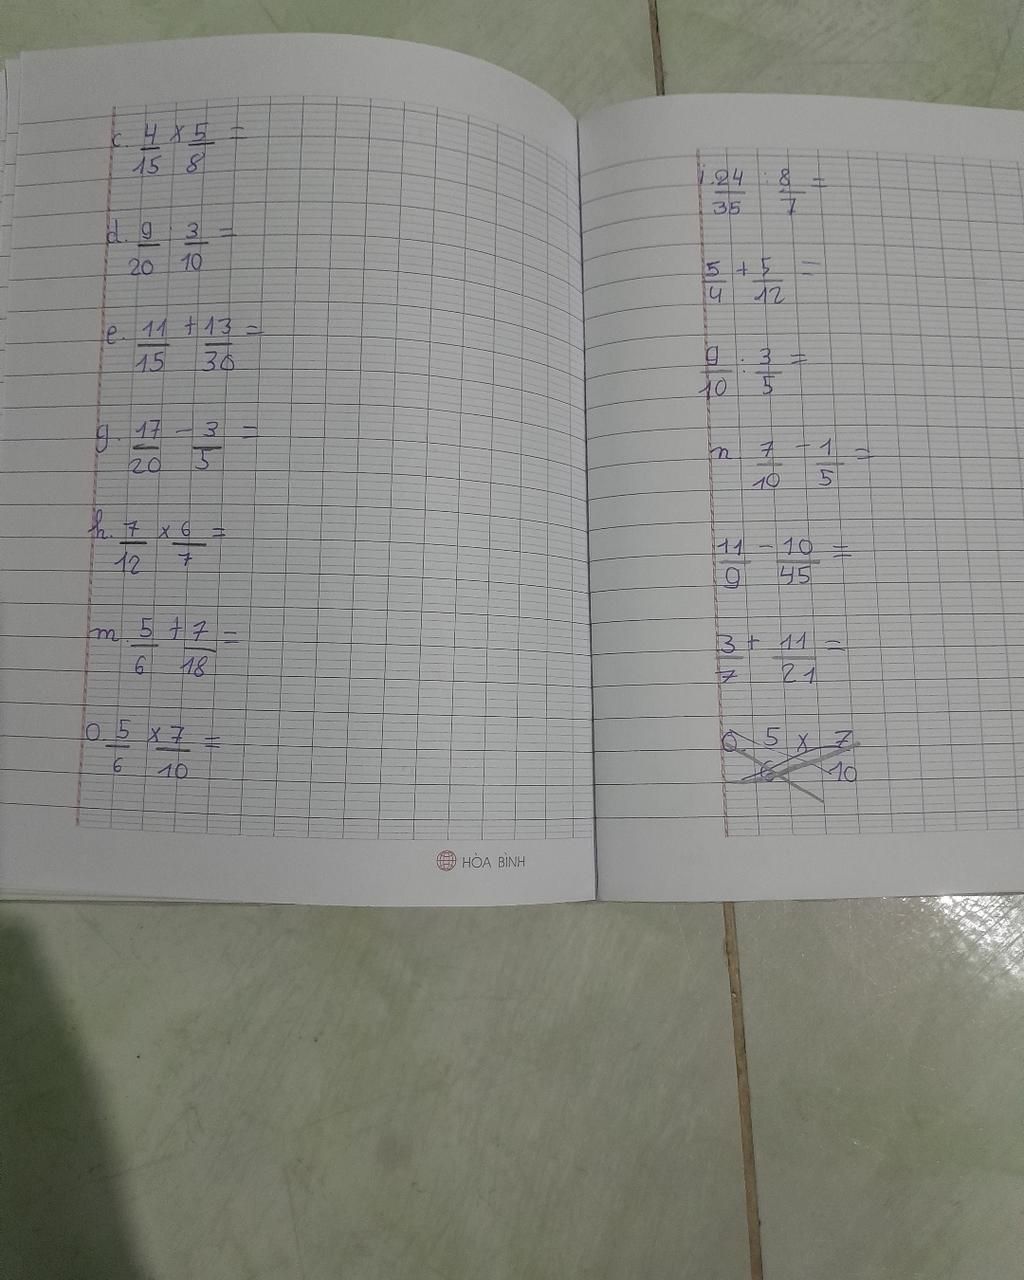 c. 4/15 x 5/8 =
d. 9/20 : 3/10 =
e. 11/15 + 13/30 =
g. 17/20 - 3/5 =
h. 7/12 x 6/7 =
m. 5/6 + 7/18 =
o. 5/6 x 7/10 =
HÒA BÌNH
i. 24/35 : 8/7 =
5/4 + 5/12 =
9/10 : 3/5 =
n 7/10 - 1/5 =
11/9 - 10/45 =
3/7 + 11/21 =
o. 5/6 x 7/10